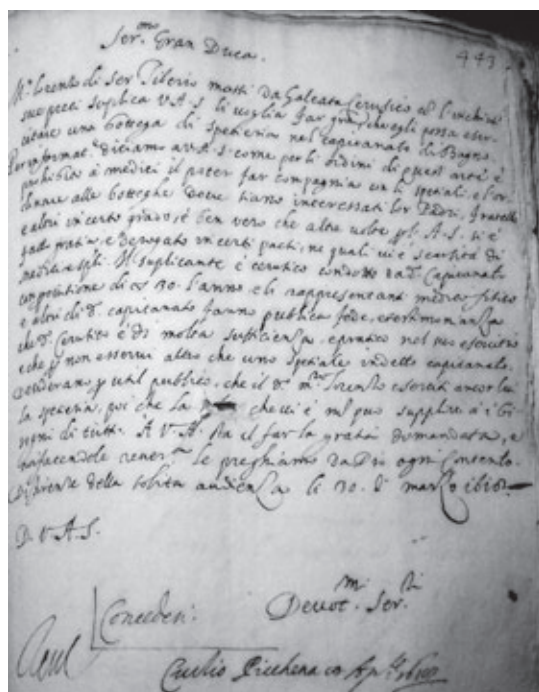 Ser.mo Gran Duca.
443
M.o Lorenzo di Ser Pilerio matti da Galeata Cerusico
sue preci suplica V.A.S. li voglia far gra. che egli possa eser-
citare una bottega di spetieria nel capitanato di Bagno
Per informat.e diciamo a V.A.S. come per li ordini di quest'arte è
prohibito à medici il poter far compagnia con li spetiali, e l'or-
dinare alle botteghe dove siano interessati lor Padri, fratelli
e altri in certo grado, è ben vero che altre volte V.A.S. si è
fatto gratia, e derogato in certi pacti, ne quali vi è scarsità di
medici e spli. Il suplicante è cerusico condotto da d.o Capitanato
con provisione di 30. l'anno e li rappresentanti medico fisico
e altri di d.o capitanato fanno publica fede, e testimonianza
che d.o Cerusico è di molta sufficienza, e pratico nel suo esercitio
e che p. non esservi altro che uno spetiale in detto capitanato.
Desiderano p. util publico, che il d.o m.ro Lorenzo eserciti ancor lui
la spetieria, poi che la che vi è mal può supplire à i bi-
sogni di tutti. A V.A.S. sta il far la gratia domandata, e
le preghiamo da Dio ogni contento.
Di Firenze della solita audienza li 30. di marzo
D. V.A.S.
Devot.mi Ser.ri
Concedesi.
Curtio Picchena